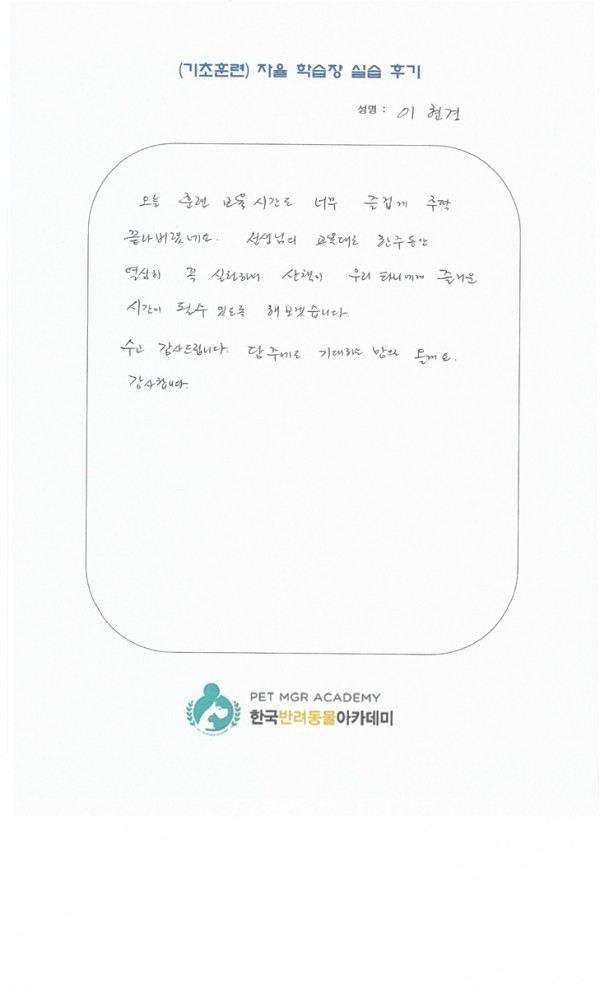 (기초훈련) 자율 학습장 실습 후기
성명 : 이 현경
오늘 훈련 교육 시간도 너무 즐겁게
끝나버렸네요. 선생님의 교육대로 한주동안
열심히 꼭 실천하며 산책이 우리 타니에게 즐거운
시간이 될수 있도록 해보겠습니다.
수고 감사드립니다. 담주에도 기대하는 맘으로 올게요.
감사합니다.
PET MGR ACADEMY
한국반려동물아카데미